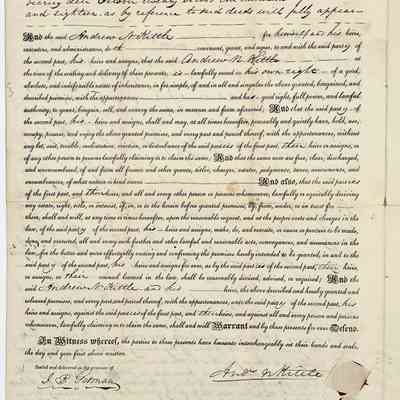 and eighteen as by reference to said deeds will fully appear
And the said Andrew N. Kittle for himself and his heirs,
executors, and administrators, do th covenant, grant, and agree, to and with the said party of
the second part, his heirs and assigns, that the said Andrew N. Kittle at
the time of the sealing and delivery of these presents, is lawfully seized in his own right of a good,
absolute, and indefeasible estate of inheritance, in fee simple, of and in all and singular the above granted, bargained, and
described premises, with the appurtenances and has good right, full power, and lawful
authority, to grant, bargain, sell, and convey the same, in manner and form aforesaid. And that the said party of
the second part, his heirs and assigns, shall and may, at all times hereafter, peaceably and quietly have, hold, use,
occupy, possess, and enjoy the above granted premises, and every part and parcel thereof, with the appurtenances, without
any let, suit, trouble, molestation, eviction, or disturbance of the said parties of the first part, their heirs or assigns, or
of any other person or persons lawfully claiming or to claim the same. And that the same now are free, clear, discharged,
and unencumbered, of and from all former and other grants, titles, charges, estates, judgments, taxes, assessments, and
encumbrances, of what nature or kind soever And also, that the said parties
of the first part, and their heirs, and all and every other person or persons whomsoever, lawfully or equitably deriving
any estate, right, title, or interest, of, in, or to the herein before granted premises, by, from, under, or in trust for
them, shall and will, at any time or times hereafter, upon the reasonable request, and at the proper costs and charges in the
law, of the said party of the second part, his heirs and assigns, make, do, and execute, or cause or procure to be made,
done, and executed, all and every such further and other lawful and reasonable acts, conveyances, and assurances in the
law, for the better and more effectually vesting and confirming the premises hereby intended to be granted, in and to the
said party of the second part, his heirs and assigns for ever, as by the said party of the second part, their heirs,
or assigns, or their counsel learned in the law, shall be reasonably devised, advised, or required; And the
said Andrew N. Kittle and his heirs, the above described and hereby granted and
released premises, and every part and parcel thereof, with the appurtenances, unto the said party of the second part, his
heirs and assigns, against the said parties of the first part, and their heirs, and against all and every person or persons
whomsoever, lawfully claiming or to claim the same, shall and will Warrant and by these presents for ever Defend.
In Witness whereof, the parties to these presents have hereunto interchangeably set their hands and seals,
the day and year first above written.
Sealed and delivered in the presence of
Andw N Kittle